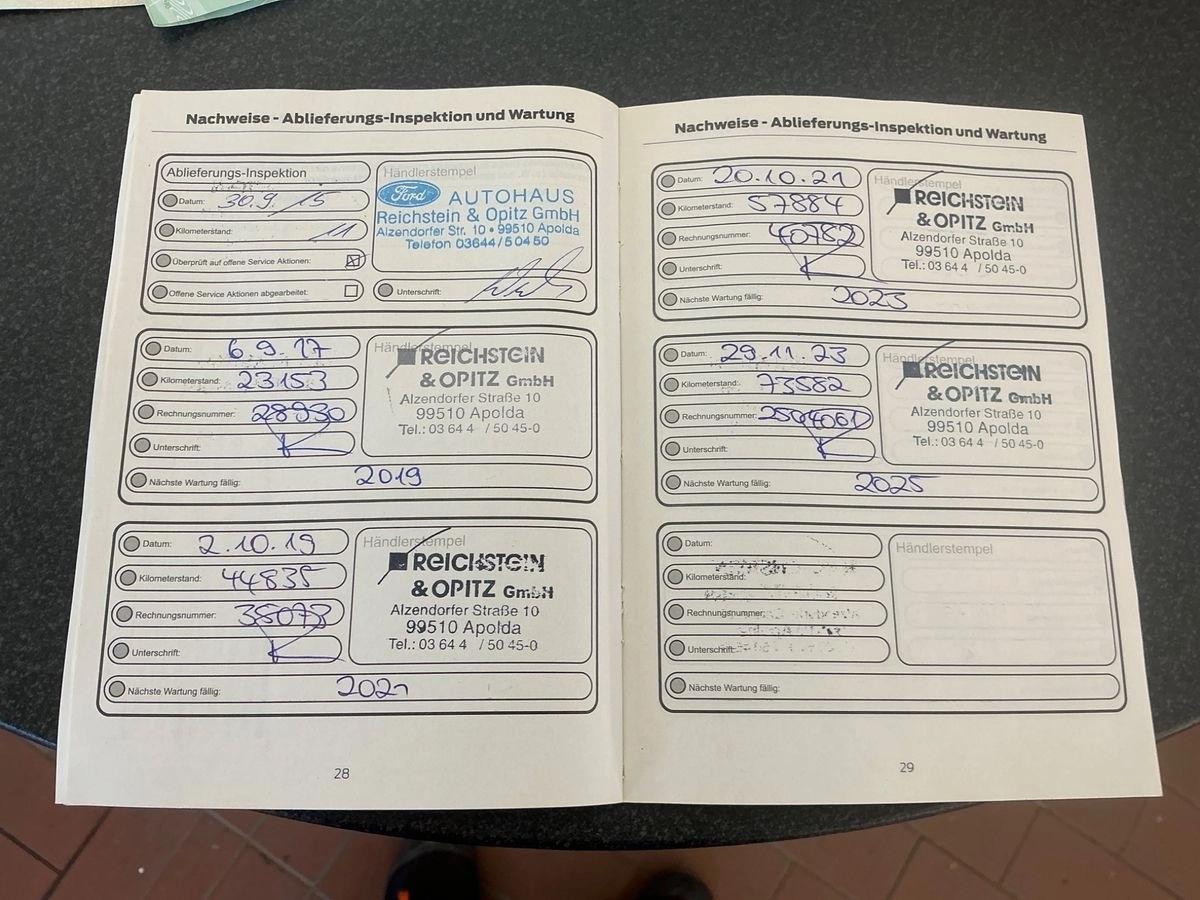 Nachweise - Ablieferungs-Inspektion und Wartung
Ablieferungs-Inspektion
Datum: 30.9.15
Kilometerstand: 11
Überprüft auf offene Service Aktionen: ☒
Offene Service Aktionen abgearbeitet: ☐
Händlerstempel
Ford AUTOHAUS
Reichstein & Opitz GmbH
Alzendorfer Str. 10 • 99510 Apolda
Telefon 03644/50450
Unterschrift:
Datum: 6.9.17
Kilometerstand: 23153
Rechnungsnummer: 28930
Unterschrift:
Händlerstempel
REICHSTEIN
& OPITZ GmbH
Alzendorfer Straße 10
99510 Apolda
Tel.: 03 64 4 / 50 45-0
Nächste Wartung fällig: 2019
Datum: 2.10.19
Kilometerstand: 44835
Rechnungsnummer: 35078
Unterschrift:
Händlerstempel
REICHSTEIN
& OPITZ GmbH
Alzendorfer Straße 10
99510 Apolda
Tel.: 03 64 4 / 50 45-0
Nächste Wartung fällig: 2021
28
Nachweise - Ablieferungs-Inspektion und Wartung
Datum: 20.10.21
Kilometerstand: 57884
Rechnungsnummer: 40782
Unterschrift:
Händlerstempel
REICHSTEIN
& OPITZ GmbH
Alzendorfer Straße 10
99510 Apolda
Tel.: 03 64 4 / 50 45-0
Nächste Wartung fällig: 2023
Datum: 29.11.23
Kilometerstand: 73582
Rechnungsnummer:
Unterschrift:
Händlerstempel
REICHSTEIN
& OPITZ GmbH
Alzendorfer Straße 10
99510 Apolda
Tel.: 03 64 4 / 50 45-0
Nächste Wartung fällig: 2025
Datum:
Kilometerstand:
Rechnungsnummer:
Unterschrift:
Händlerstempel
Nächste Wartung fällig:
29